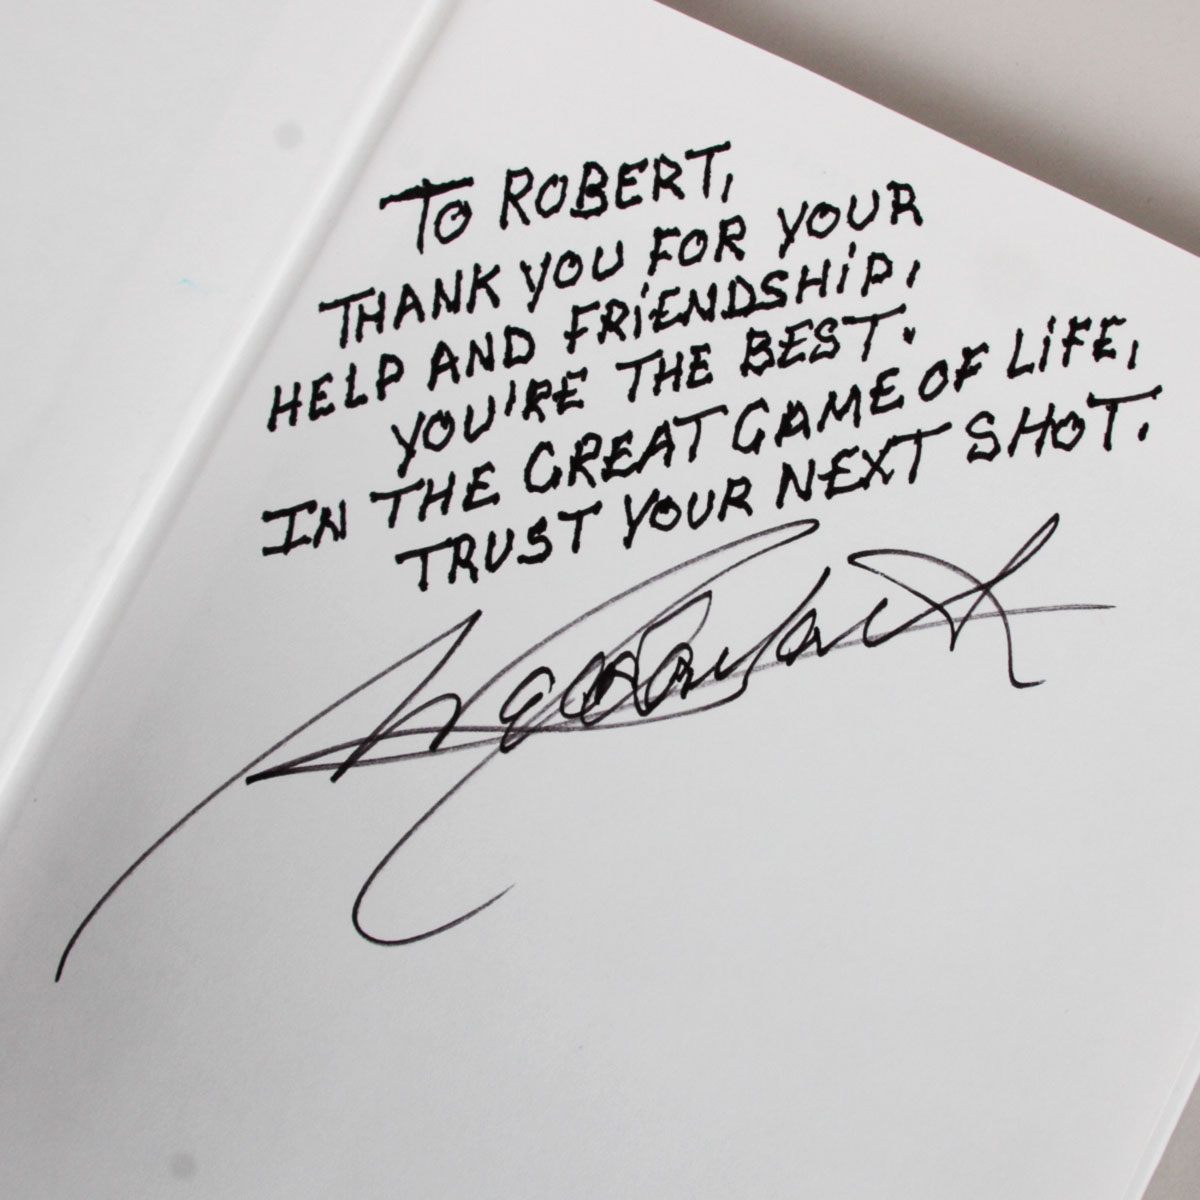 TO ROBERT,
THANK YOU FOR YOUR
HELP AND FRIENDSHIP,
YOU'RE THE BEST.
IN THE GREAT GAME OF LIFE,
TRUST YOUR NEXT SHOT.